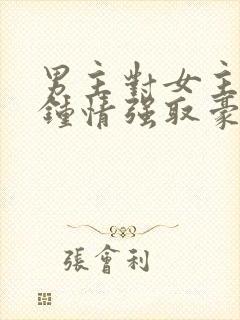 男主對女主
鍾情强取豪
張會利